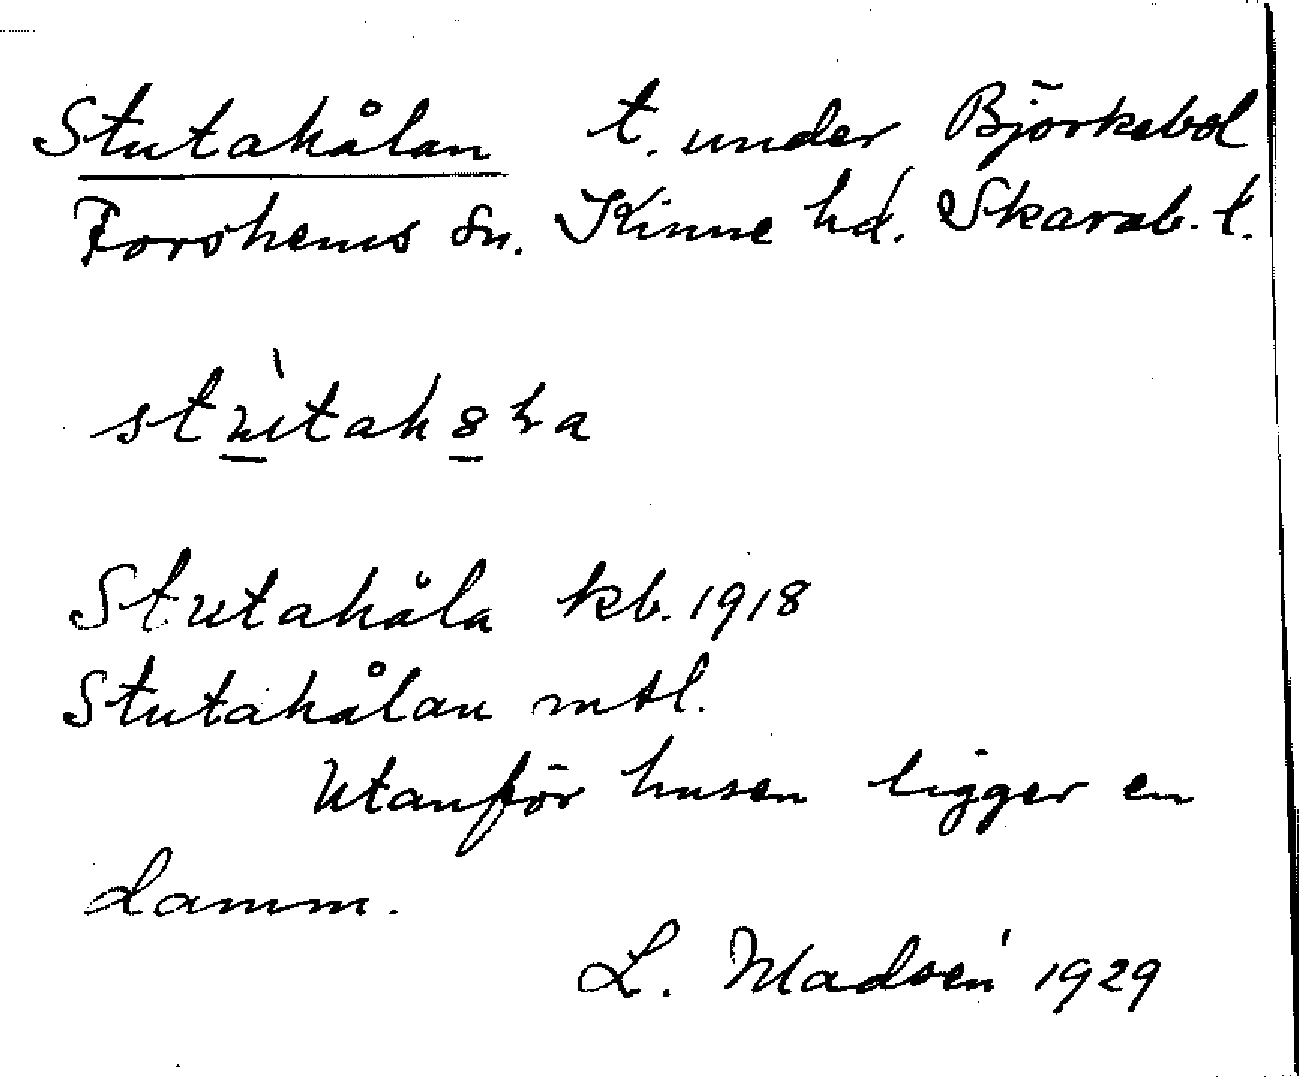 Stutahålan t. under Björkebol
Forshems sn. Kinne hd. Skarab. l.
Stutahåla kb. 1918
Stutahålan mtl.
Utanför husen ligger en
damm.
L. Madsén 1929